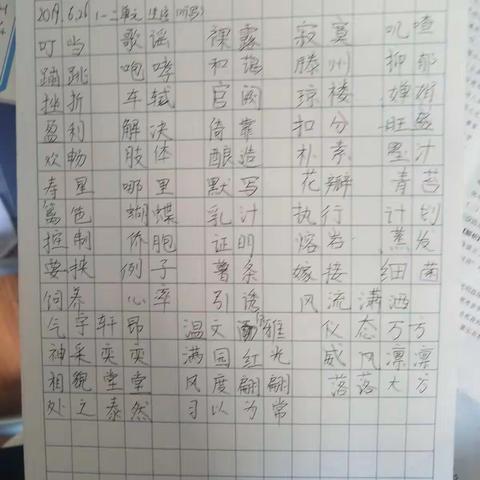 2019.6.26 (一二单元 生字 听写)
叮当 歌谣 裸露 寂寞 叽喳
蹦跳 咆哮 和蔼 滕州 抑郁
挫折 车轼 宫阙 琼楼 婵娟
盈利 解决 倚靠 扣分 旺盛
欢畅 肢体 酿造 朴素 墨汁
寿星 哪里 默写 花瓣 青苔
蓝色 蝴蝶 乳汁 执行 计划
控制 侨胞 证明 熔岩 蒸发
要挟 例子 薯条 嫁接 细菌
饲养 心率 引诱 风流潇洒
气宇轩昂 温文尔雅 仪态万方
神采奕奕 满园红光 威风凛凛
相貌堂堂 风度翩翩 落落大方
处之泰然 习以为常